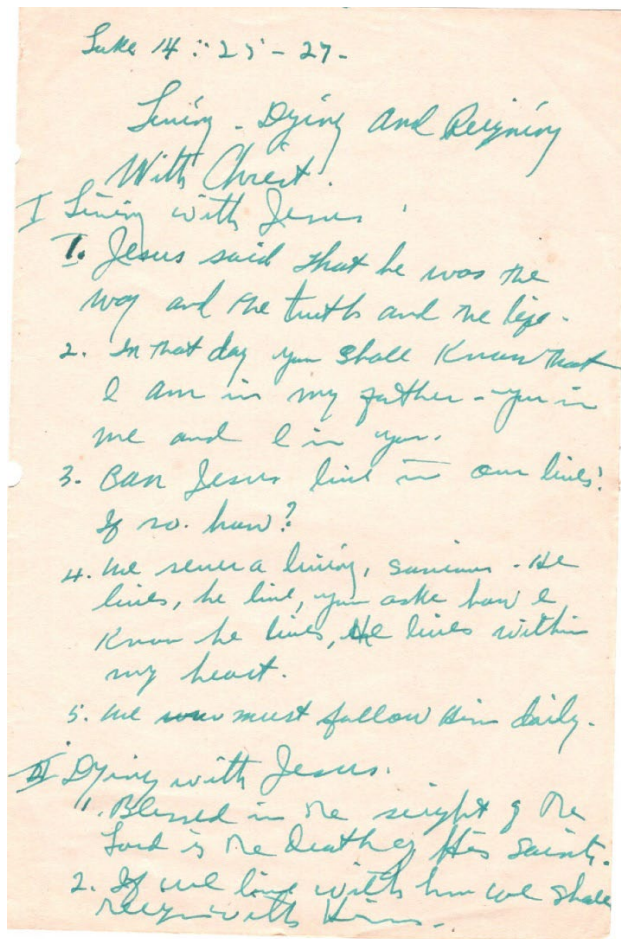 Luke 14:25-27-
Living - Dying and Reigning
With Christ.
I Living with Jesus.
1. Jesus said that he was the
way and the truth and the life.
2. In that day you shall know that
I am in my father - you in
me and I in you.
3. Can Jesus live in our lives?
If so. how?
4. We serve a living, saviour - He
lives, he live, you aske how I
know he lives, He lives within
my heart.
5. We must follow Him daily.
II Dying with Jesus.
1. Blessed in the seight of the
Lord is the death of His saints.
2. If we live with him we shall
reign with Him.